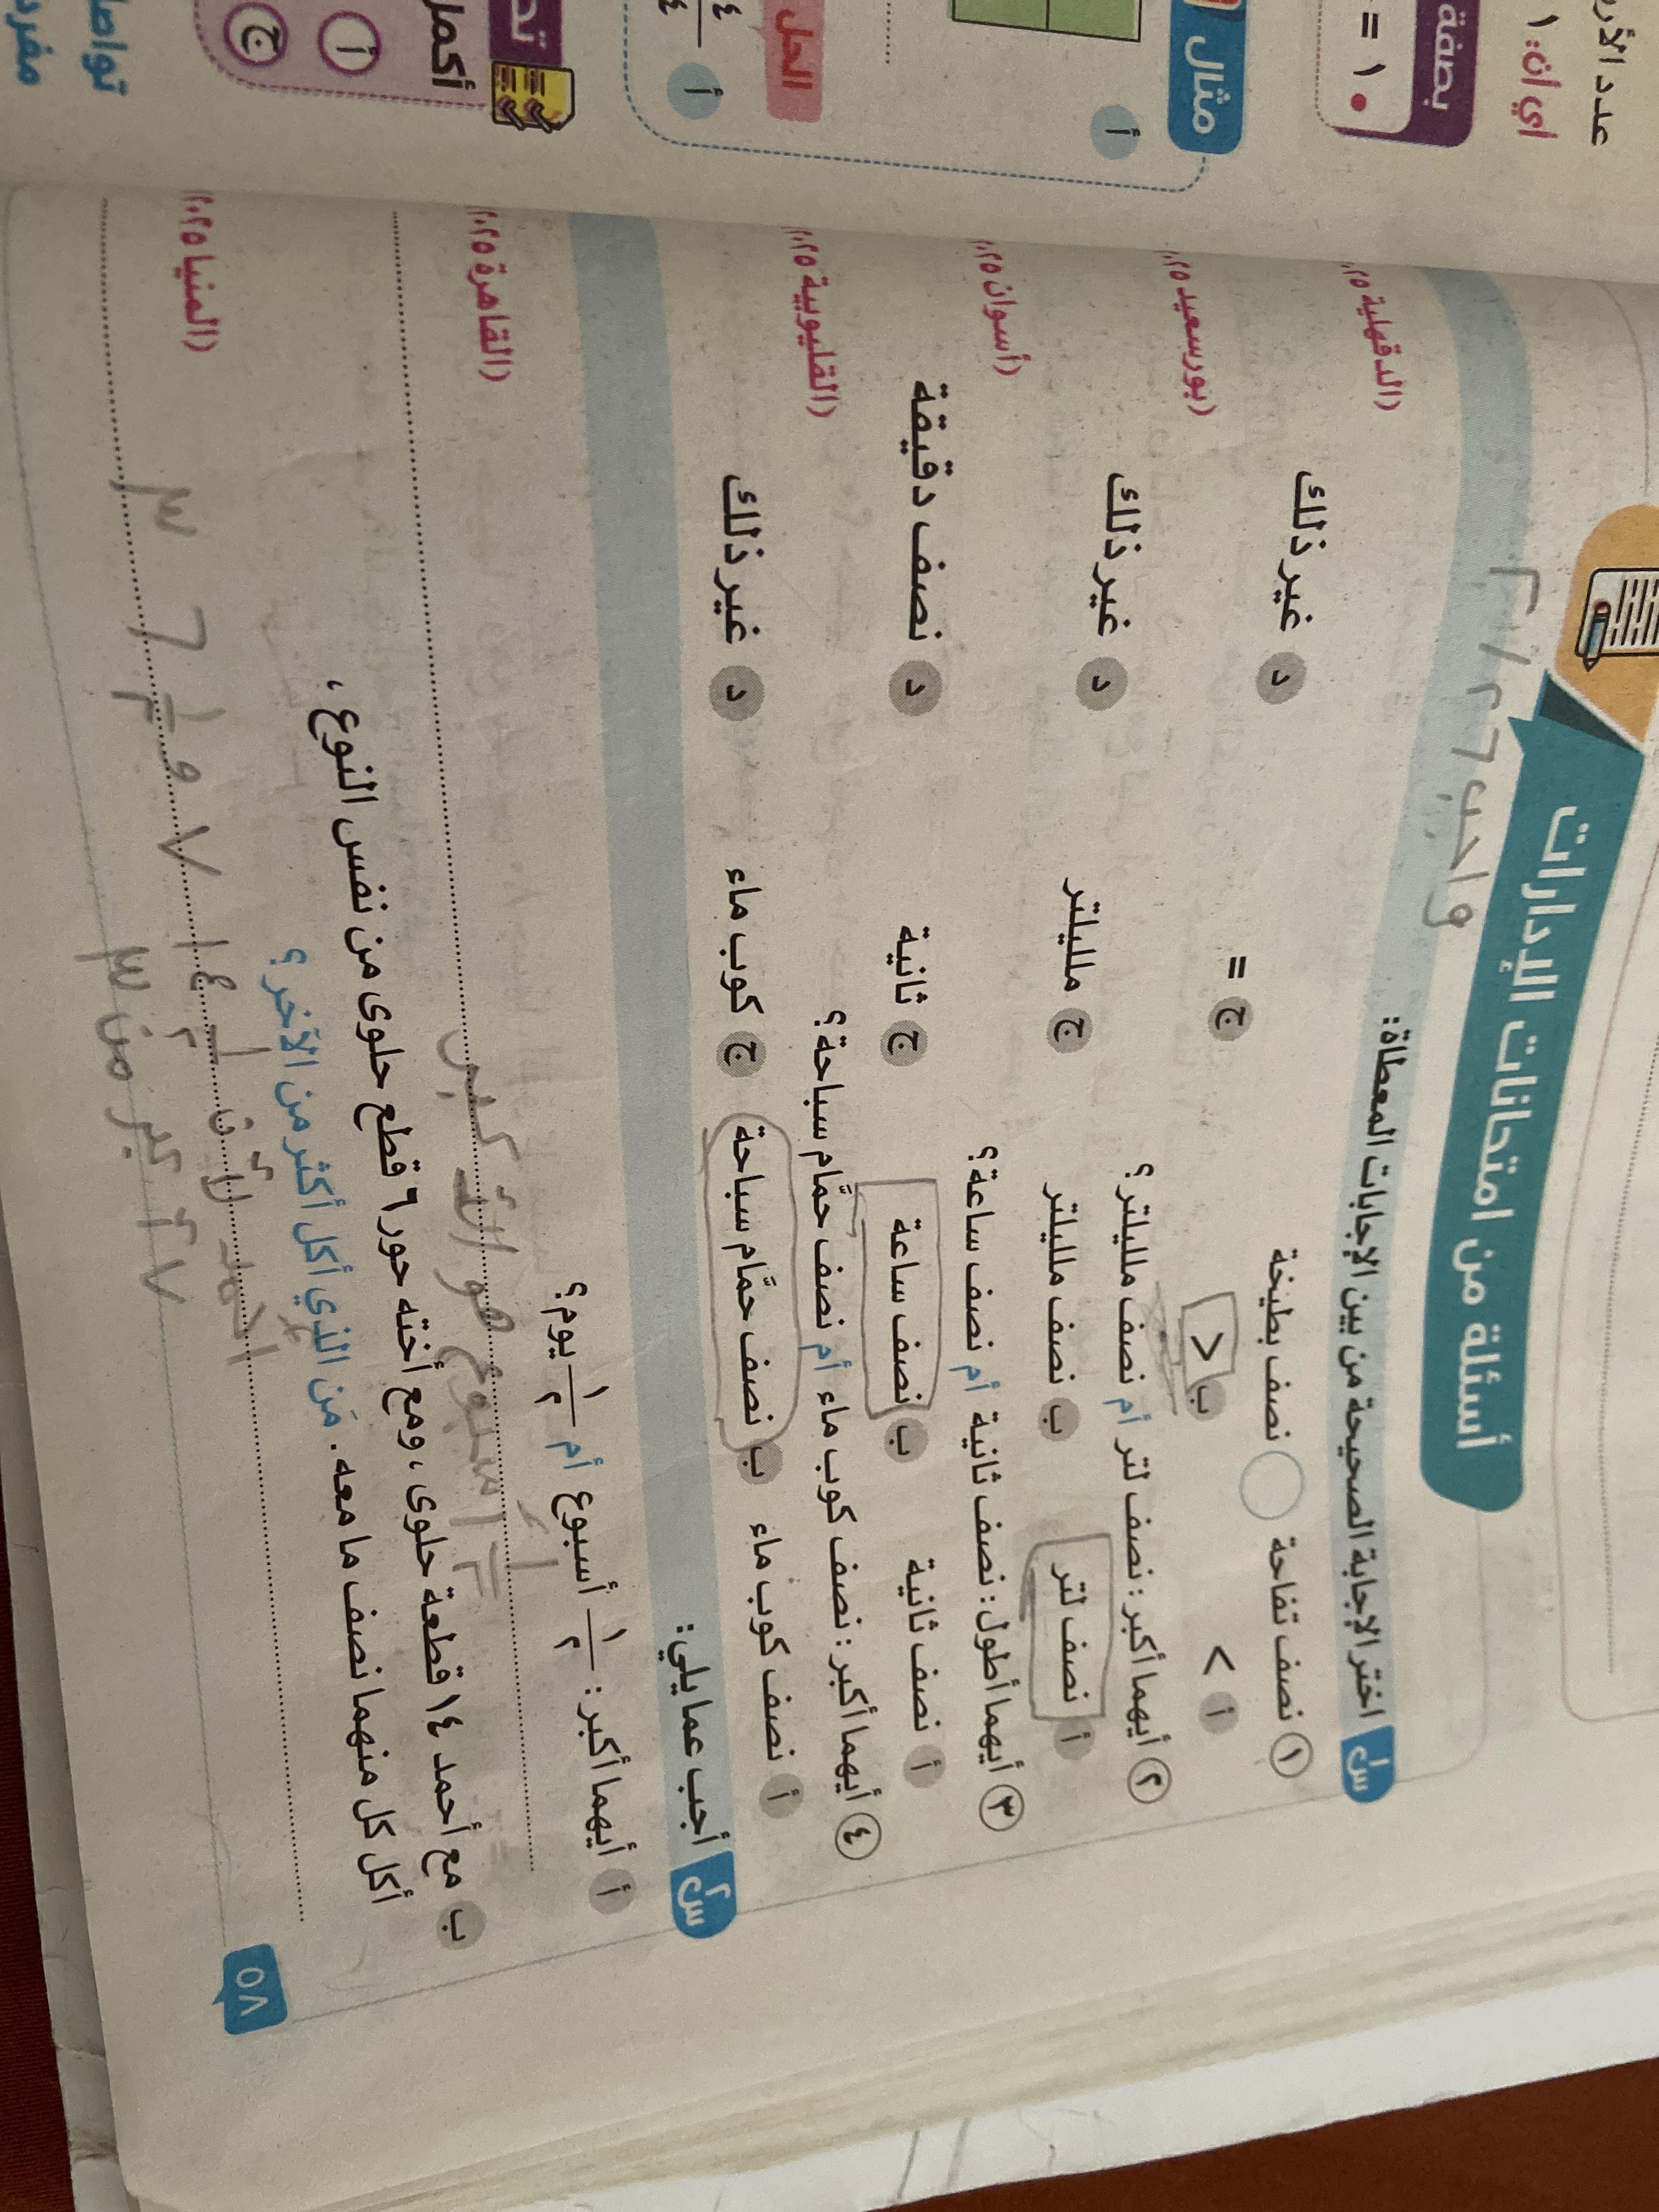 عدد الأر
أي أن: ١
بصفة
= ١
مثال
أ
الحل
أ
٤
٤
تد
أكمل
أ
ج
تواصل
مفرد
أسئلة من امتحانات الإدارات
واجب
س١ اختر الإجابة الصحيحة من بين الإجابات المعطاة:
١ نصف تفاحة نصف بطيخة (الدقهلية ٢٥
أ < ب > ج = د غير ذلك
٢ أيهما أكبر: نصف لتر أم نصف ملليلتر؟ (بورسعيد ٢٥
أ نصف لتر ب نصف ملليلتر ج ملليلتر د غير ذلك
٣ أيهما أطول: نصف ثانية أم نصف ساعة؟ (أسوان ٢٥
أ نصف ثانية ب نصف ساعة ج ثانية د نصف دقيقة
٤ أيهما أكبر: نصف كوب ماء أم نصف حمَّام سباحة؟ (القليوبية ٢٠٢٥
أ نصف كوب ماء ب نصف حمَّام سباحة ج كوب ماء د غير ذلك
س٢ أجب عما يلي:
أ أيهما أكبر: ١/٢ أسبوع أم ١/٢ يوم؟ (القاهرة ٢٠٢٥
١/٢ اسبوع هو الأكبر
ب مع أحمد ١٤ قطعة حلوى، ومع أخته حور ٦ قطع حلوى من نفس النوع،
أكل كل منهما نصف ما معه. مَن الذي أكل أكثر من الآخر؟ (المنيا ٢٠٢٥
احمد لأن ١/٢ ١٤ ٧ و ١/٢ ٦ ٣
٧ أكبر من ٣
٥٨